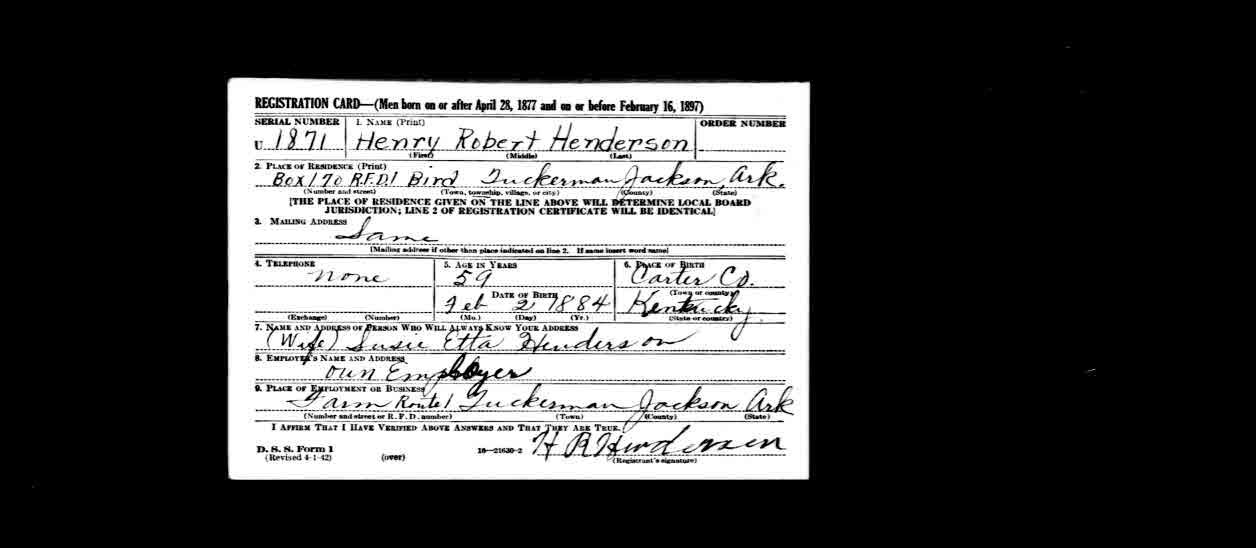 REGISTRATION CARD—(Men born on or after April 28, 1877 and on or before February 16, 1897)
SERIAL NUMBER 1. NAME (Print) ORDER NUMBER
U 1871 Henry Robert Henderson
(First) (Middle) (Last)
2. PLACE OF RESIDENCE (Print)
Box 170 R.F.D.1 Bird Tuckerman Jackson, Ark.
(Number and street) (Town, township, village, or city) (County) (State)
[THE PLACE OF RESIDENCE GIVEN ON THE LINE ABOVE WILL DETERMINE LOCAL BOARD
JURISDICTION; LINE 2 OF REGISTRATION CERTIFICATE WILL BE IDENTICAL]
3. MAILING ADDRESS
Same
[Mailing address if other than place indicated on line 2. If same insert word same]
4. TELEPHONE 5. AGE IN YEARS 6. PLACE OF BIRTH
None 59 Carter Co.
DATE OF BIRTH (Town or county)
Feb 2 1884 Kentucky
(Exchange) (Number) (Mo.) (Day) (Yr.) (State or country)
7. NAME AND ADDRESS OF PERSON WHO WILL ALWAYS KNOW YOUR ADDRESS
(Wife) Susie Etta Henderson
8. EMPLOYER'S NAME AND ADDRESS
own Employer
9. PLACE OF EMPLOYMENT OR BUSINESS
Farm Route 1 Tuckerman Jackson Ark
(Number and street or R. F. D. number) (Town) (County) (State)
I AFFIRM THAT I HAVE VERIFIED ABOVE ANSWERS AND THAT THEY ARE TRUE.
D. S. S. Form 1
(Revised 4-1-42) (over) 16—21630-2 H R Henderson
(Registrant's signature)